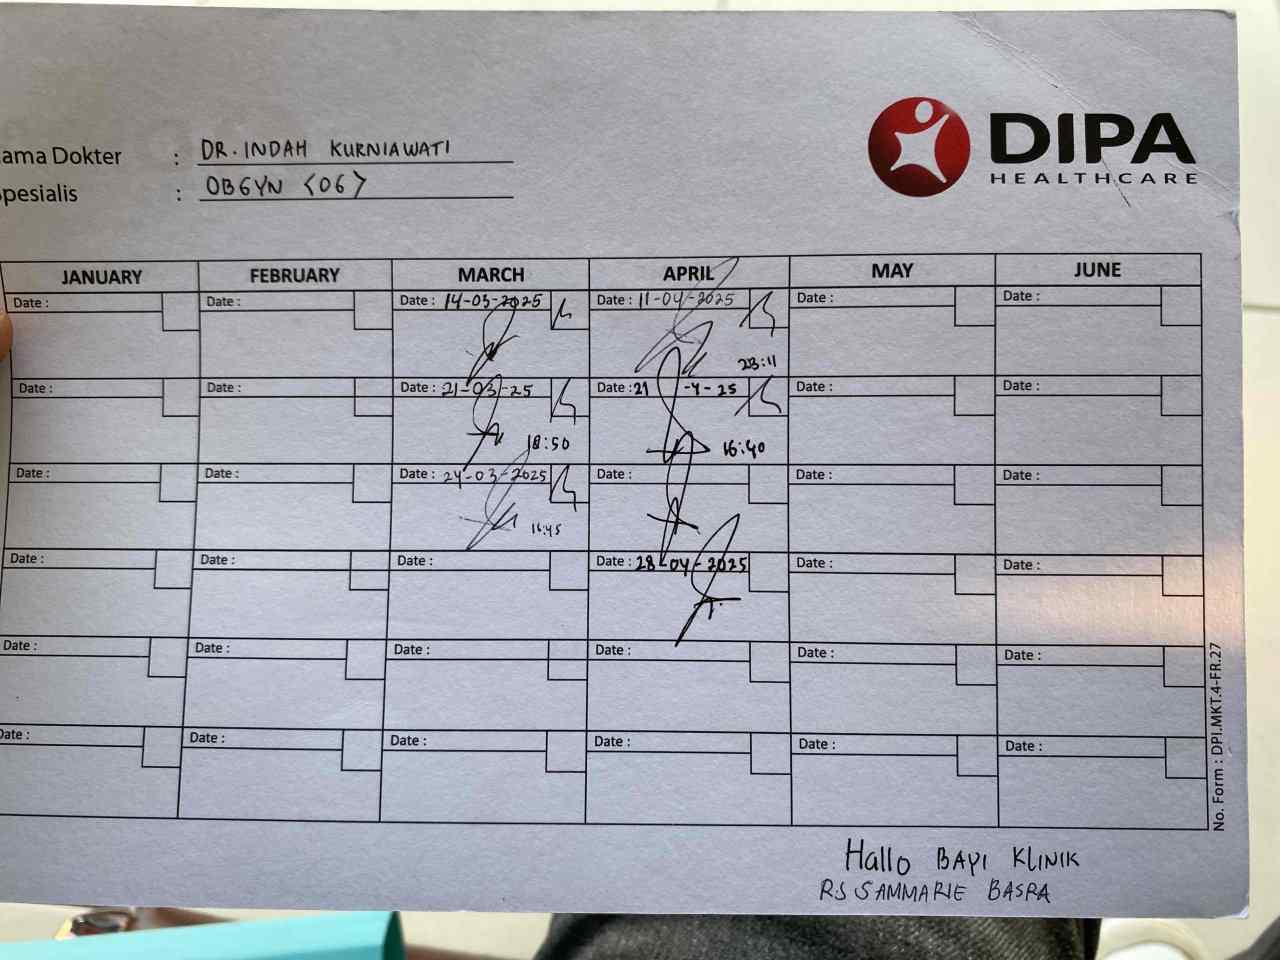 DIPA
HEALTHCARE
ama Dokter : DR. INDAH KURNIAWATI
pesialis : OBGYN <06>
JANUARY FEBRUARY MARCH APRIL MAY JUNE
Date : Date : Date : 14-03-2025 Date : 11-04-2025 Date : Date :
23:11
Date : Date : Date : 21-03-25 Date : 21 -4-25 Date : Date :
18:50 16:40
Date : Date : Date : 24-03-2025 Date : Date : Date :
16:45
Date : Date : Date : Date : 28-04-2025 Date : Date :
Date : Date : Date : Date : Date : Date :
Date : Date : Date : Date : Date : Date :
No. Form : DPI.MKT.4-FR.27
Hallo BAYI KLINIK
RS SAMMARIE BASRA